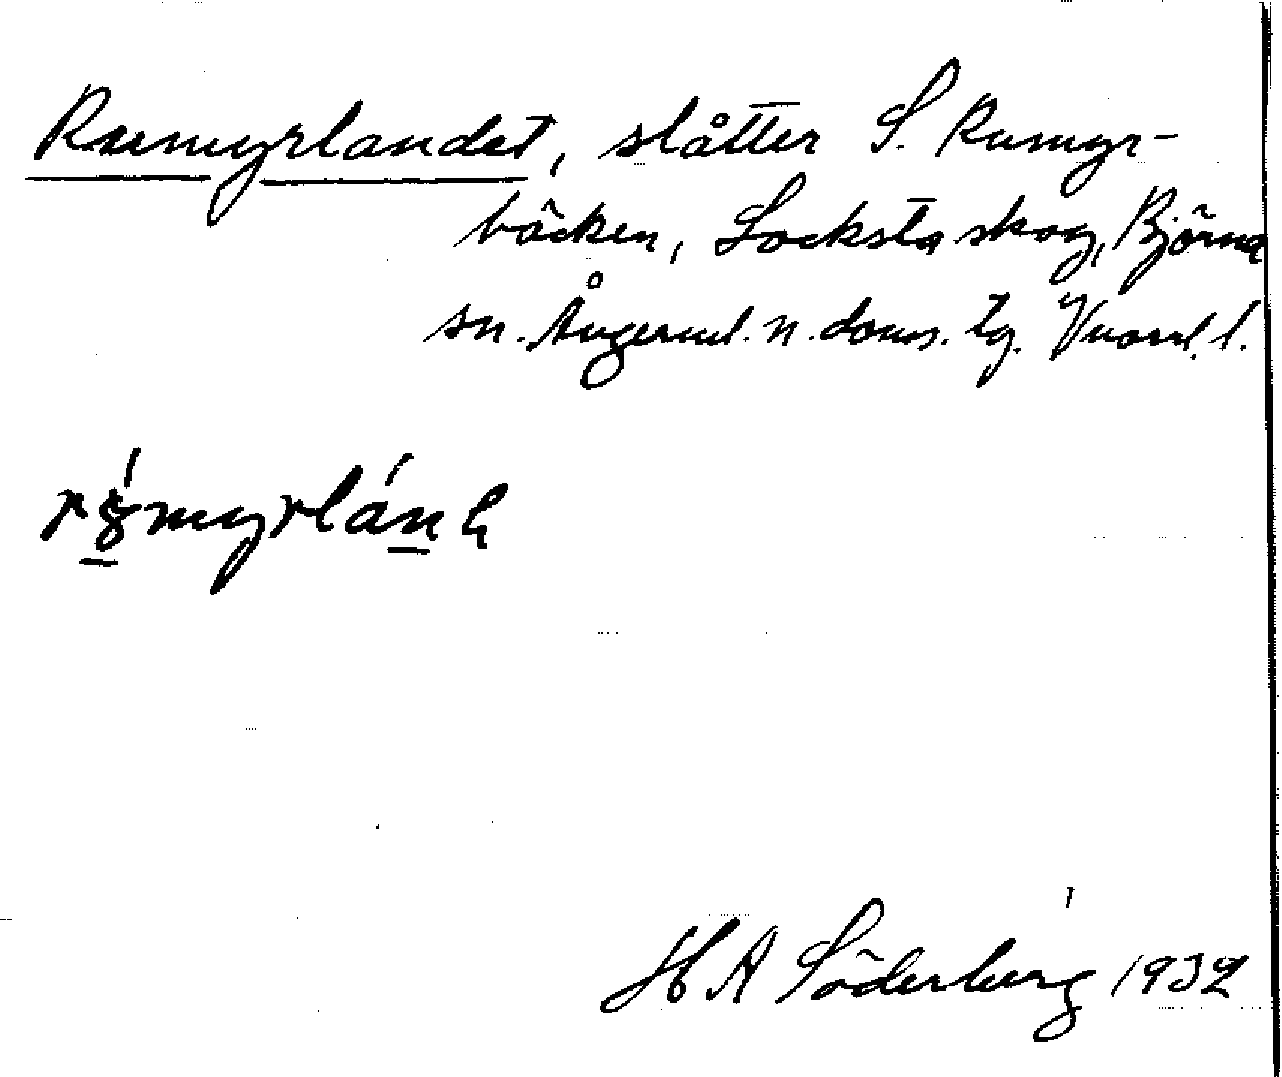 Rumyrlandet, slåtter S. Rumyr-
bäcken, Locksta skog, Björna
sn. Ångerml. n. doms. tg. Vnorrl. l.
H A Söderberg 1932